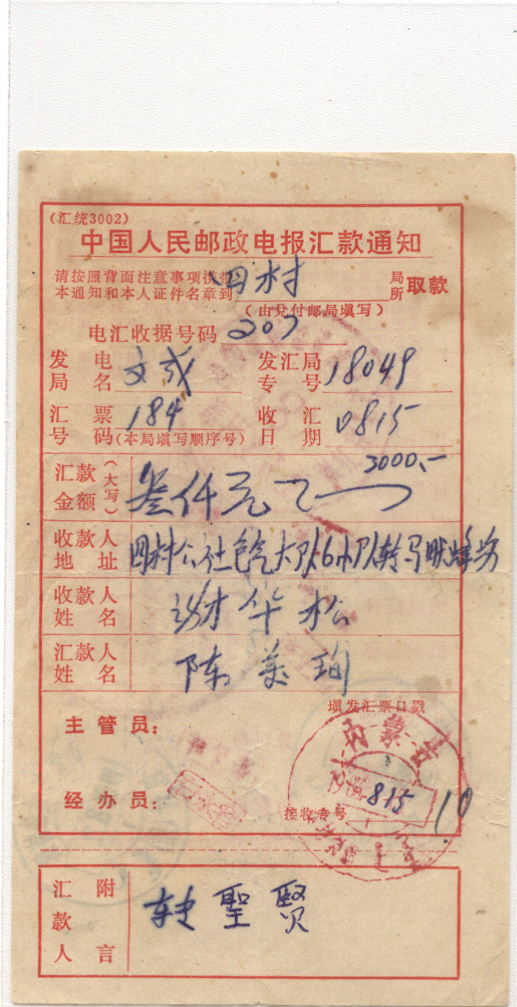 (汇统3002)
中国人民邮政电报汇款通知
请按照背面注意事项携带 四村 局
本通知和本人证件名章到 所 取款
(由兑付邮局填写)
电汇收据号码 207
发电 文成 发汇局 18049
局名 专号
汇票 184 收汇 0815
号码(本局填写顺序号) 日期
3000.-
汇款(大写) 叁仟元
金额
收款人 四村公社 大队6小队转马
地址
收款人 谢华松
姓名
汇款人 陈美珣
姓名
填发汇票日戳
主管员:
内蒙古
815
经办员:
接收专号 10
附
汇款人 转聖贤
言